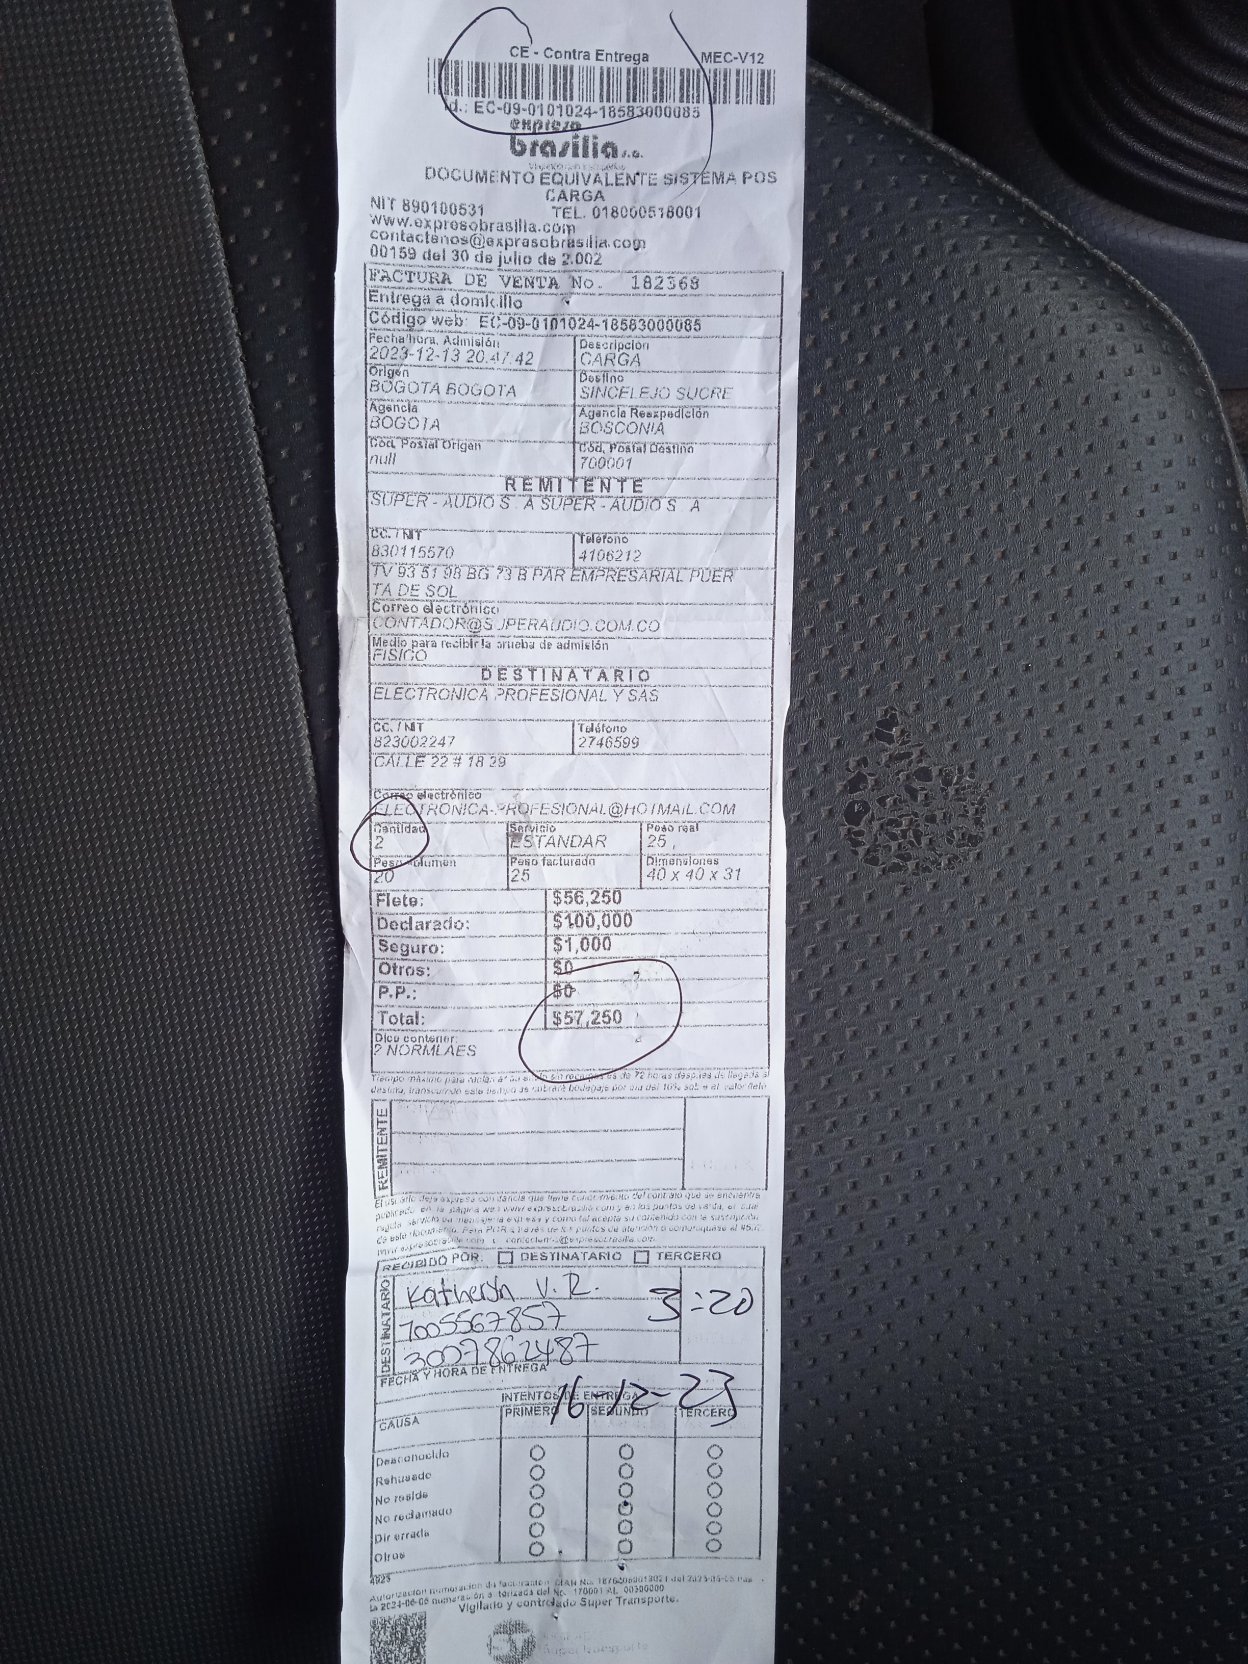 CE - Contra Entrega MEC-V12
Id.: EC-09-0101024-18583000085
expreso
brasilia s.a.
DOCUMENTO EQUIVALENTE SISTEMA POS
CARGA
NIT 890100531 TEL. 018000518001
www.expresobrasilia.com
contactenos@expresobrasilia.com
00159 del 30 de julio de 2.002
FACTURA DE VENTA No. 182368
Entrega a domicilio
Código web: EC-09-0101024-18583000085
Fecha/hora. Admisión Descripcion
2023-12-13 20:47:42 CARGA
Origen Destino
BOGOTA BOGOTA SINCELEJO SUCRE
Agencia Agencia Reexpedición
BOGOTA BOSCONIA
Cód. Postal Origen Cód. Postal Destino
null 700001
REMITENTE
SUPER - AUDIO S . A SUPER - AUDIO S . A
CC. / NIT Teléfono
830115570 4106212
TV 93 51 98 BG 73 B PAR EMPRESARIAL PUER
TA DE SOL
Correo electrónico
CONTADOR@SUPERAUDIO.COM.CO
Medio para recibir la prueba de admisión
FISICO
DESTINATARIO
ELECTRONICA PROFESIONAL Y SAS
CC. / NIT Teléfono
823002247 2746599
CALLE 22 # 18 29
Correo electrónico
ELECTRONICA-PROFESIONAL@HOTMAIL.COM
Cantidad Servicio Peso real
2 ESTANDAR 25
Peso volumen Peso facturado Dimensiones
20 25 40 x 40 x 31
Flete: $56,250
Declarado: $100,000
Seguro: $1,000
Otros: $0
P.P.: $0
Total: $57,250
Dice contener:
2 NORMLAES
de 72 horas después de llegada al
destino, transcurrido este tiempo se cobrará bodegaje por día del 10% sob e el valor flete
REMITENTE
RECIBIDO POR: DESTINATARIO TERCERO
DESTINATARIO
V. R. 3:20
1005567857
3007862487
FECHA Y HORA DE ENTREGA
16-12-23
INTENTOS DE ENTREGA
CAUSA PRIMERO SEGUNDO TERCERO
Desconocido
Rehusado
No reside
No reclamado
Dir errada
Otros
4923
Vigilado y controlado Super Transporte.